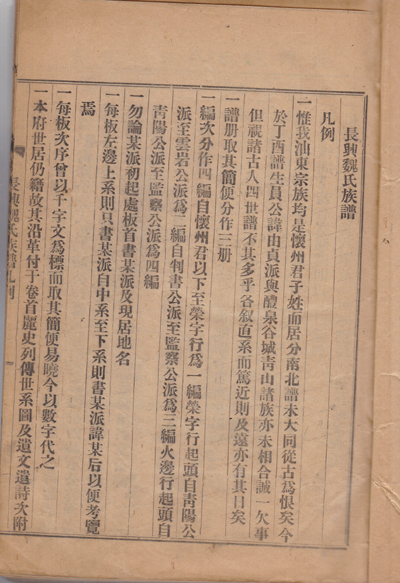 長興魏氏族譜
凡例
一惟我汕東宗族均是懷州君子姓而居分南北譜未大同從古為恨矣今
於丁酉譜生員公諱由貞派與醴泉谷城靑山諸族亦未相合誠一欠事
但視諸古人四世譜不其多乎各叙直系而篤近則及遠亦有其日矣
一譜册取其簡便分作三册
一編次分作四編自懷州君以下至榮字行爲一編榮字行起頭自靑陽公
派至雲岩公派爲二編自判書公派至監察公派爲三編火邊行起頭自
靑陽公派至監察公派爲四編
一勿論某派初起處板首書某派及現居地名
一每板左邊上系則只書某派自中系至下系則書某派諱某后以便考覽
焉
一每板次序曾以千字文爲標而取其簡便易曉今以數字代之
一本府世居仍籍故其沿革付于卷首麗史列傳世系圖及遺文遺 次附
長興魏氏族譜凡例